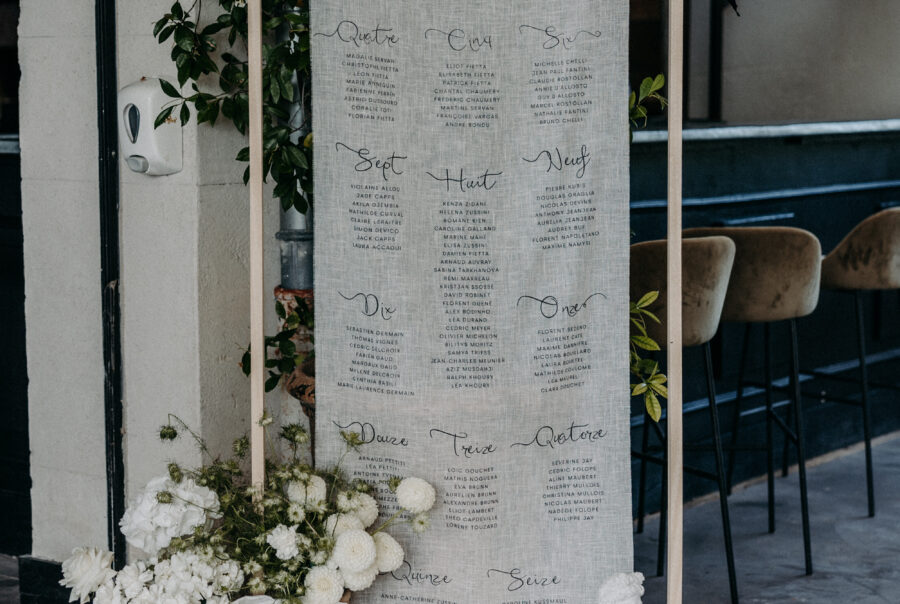 Quatre
MAGALIE SERVAN
CHRISTOPHE FIETTA
LÉON FIETTA
MARIE
FABIENNE
ASTRID DUSSOURD
CORALIE TOTI
FLORIAN FIETTA
Cinq
ELIOT FIETTA
ELISABETH FIETTA
PATRICK FIETTA
CHANTAL CHAUMERY
FRÉDÉRIC CHAUMERY
MARTINE SERVAN
FRANÇOISE VARGAS
ANDRÉ BONDU
Six
MICHELLE CHELLI
JEAN PAUL FANTINI
CLAUDE ROSTOLLAN
ANNIE D'ALLOSTO
GUY D'ALLOSTO
MARCEL ROSTOLLAN
NATHALIE FANTINI
BRUNO CHELLI
Sept
VIOLAINE ALLOU
JADE CAPPS
AKILA DJEMBIA
MATHILDE CURVAL
CLAIRE LEMAITRE
SIMON DEVICO
JACK CAPPS
LAURA ACCOUAI
Huit
KENZA ZIDANE
HELENA ZUSSINI
ROMANT KIEN
CAROLINE GALLAND
MARINE MAHÉ
ELISA ZUSSINI
DAMIEN FIETTA
ARNAUD AUVRAY
SABINA TARKHANOVA
RÉMI MARREAU
KRISTJAN SSOSSÉ
DAVID ROBINET
FLORENT DUÉNÉ
ALEX BODINHO
LÉA DURAND
CÉDRIC MEYER
OLIVIER MICHELON
BILITYS MORITZ
SAMYA TRIPSS
JEAN-CHARLES MEUNIER
AZIZ MUSDADJI
RALPH KHOURY
LÉA KHOURY
Neuf
PIERRE KUBIS
DOUGLAS GRAGLIA
NICOLAS DEVINS
ANTHONY JEANJEAN
AURÉLIE JEANJEAN
AUDREY BUF
FLORENT NAPOLETANO
MAXIME NAMYSL
Dix
SÉBASTIEN GERMAIN
THOMAS VIGNES
CÉDRIC DELCROIX
FABIEN GAUD
MARGAUX GAUD
MILÈNE DELCROIX
CYNTHIA BASTI
MARIE LAURENCE GERMAIN
Onze
FLORENT BEZERD
LAURENT CAFÉ
MAXIME DARRIÈRE
NICOLAS BOUILLARD
LAURA BOUTET
MATHILDE COLLOMB
LÉA MAUREL
CLARA DOUCHET
Douze
ARNAUD PETTITI
LÉA PETTITI
ANTOINE
Treize
LOÏC DOUCHET
MATHIS NOGUERA
EVA BRUNN
AURÉLIEN BRUNN
ALEXANDRE BRUNN
ELIOT LAMBERT
THÉO CAPDEVILLE
LORENE TOUZARD
Quatorze
SÉVERINE JAY
CÉDRIC FOLOPE
THIERRY MULLOIS
CHRISTINA MULLOIS
NICOLAS MAUBERT
NADÈGE FOLOPE
PHILIPPE JAY
Quinze
ANNE-CATHERINE
Seize
CAROLINE KUSSMAUL